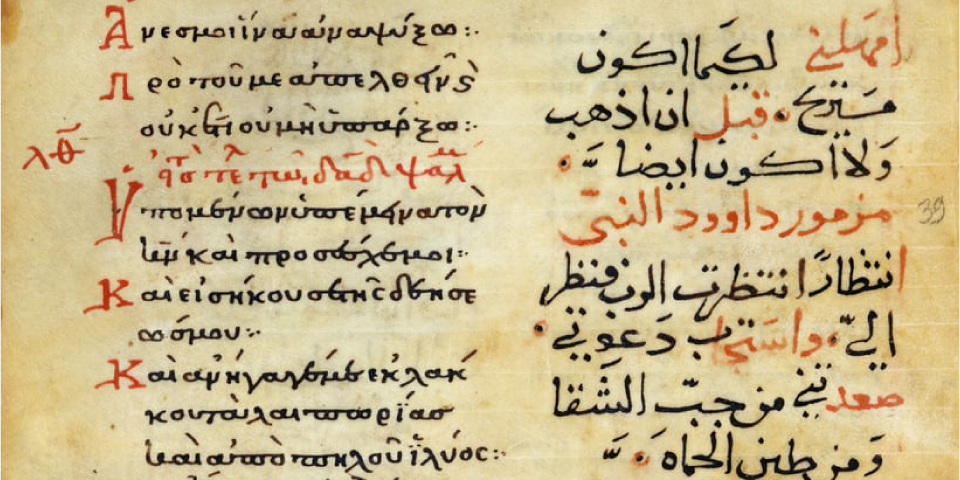 Ἄνες μοι ἵνα ἀναψύξω:·
Πρὸ τοῦ με ἀπελθεῖν ϛ̀
οὐκέτι οὐ μὴ ὑπάρξω:·
λθ
τῶ δαδ ψαλμ
Ὑπομένων ὑπέμεινα τὸν
κν καὶ προσέσχε μοι:·
Καὶ εἰσήκουσε τῆς δεήσε
ώς μου:·
Καὶ ἀνήγαγέ με ἐκ λάκ
κου ταλαιπωρίας
καὶ ἀπὸ πηλοῦ ἰλύος:·
امهلني لكيما اكون
مستريح قبل ان اذهب
ولا اكون ايضا
مزمور داوود النبيّ
39
انتظارًا انتظرت الرب فنظر
اليّ واستجاب دعوتي
صعدني من جبّ الشقا
ومن طين الحماه